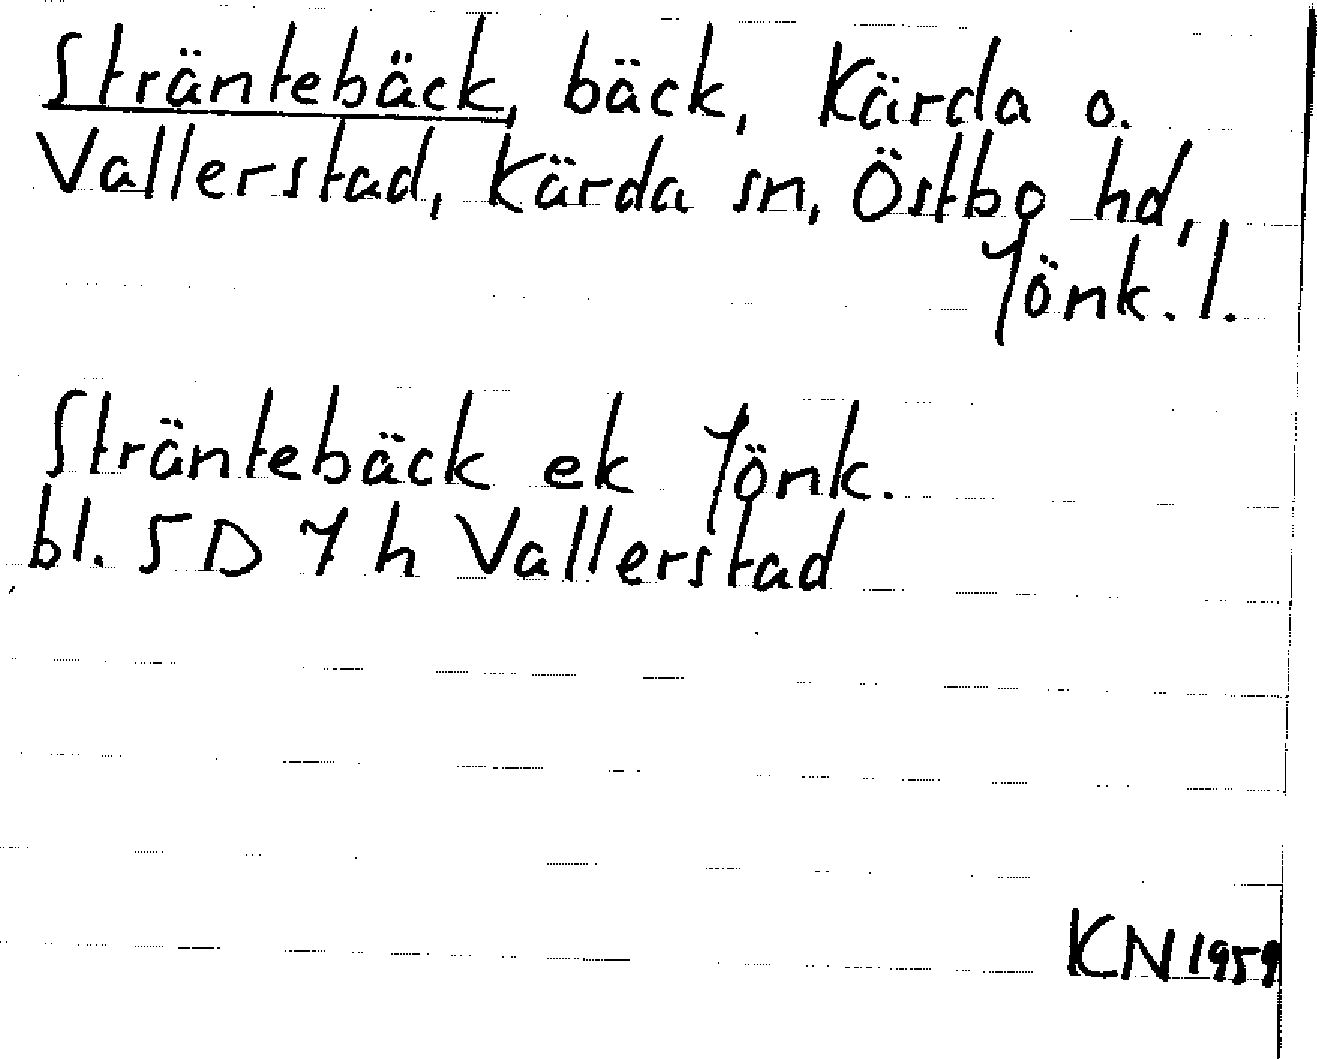 Sträntebäck, bäck, Kärda o.
Vallerstad, Kärda sn, Östbo hd,
Jönk. l.
Sträntebäck ek Jönk.
bl. 5 D 7 h Vallerstad
KN 1959